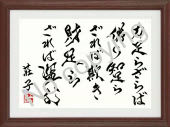 力足らざれば
偽り知足ら
ざれば欺き
財足ら
ざれば盗む
荘子
No copying